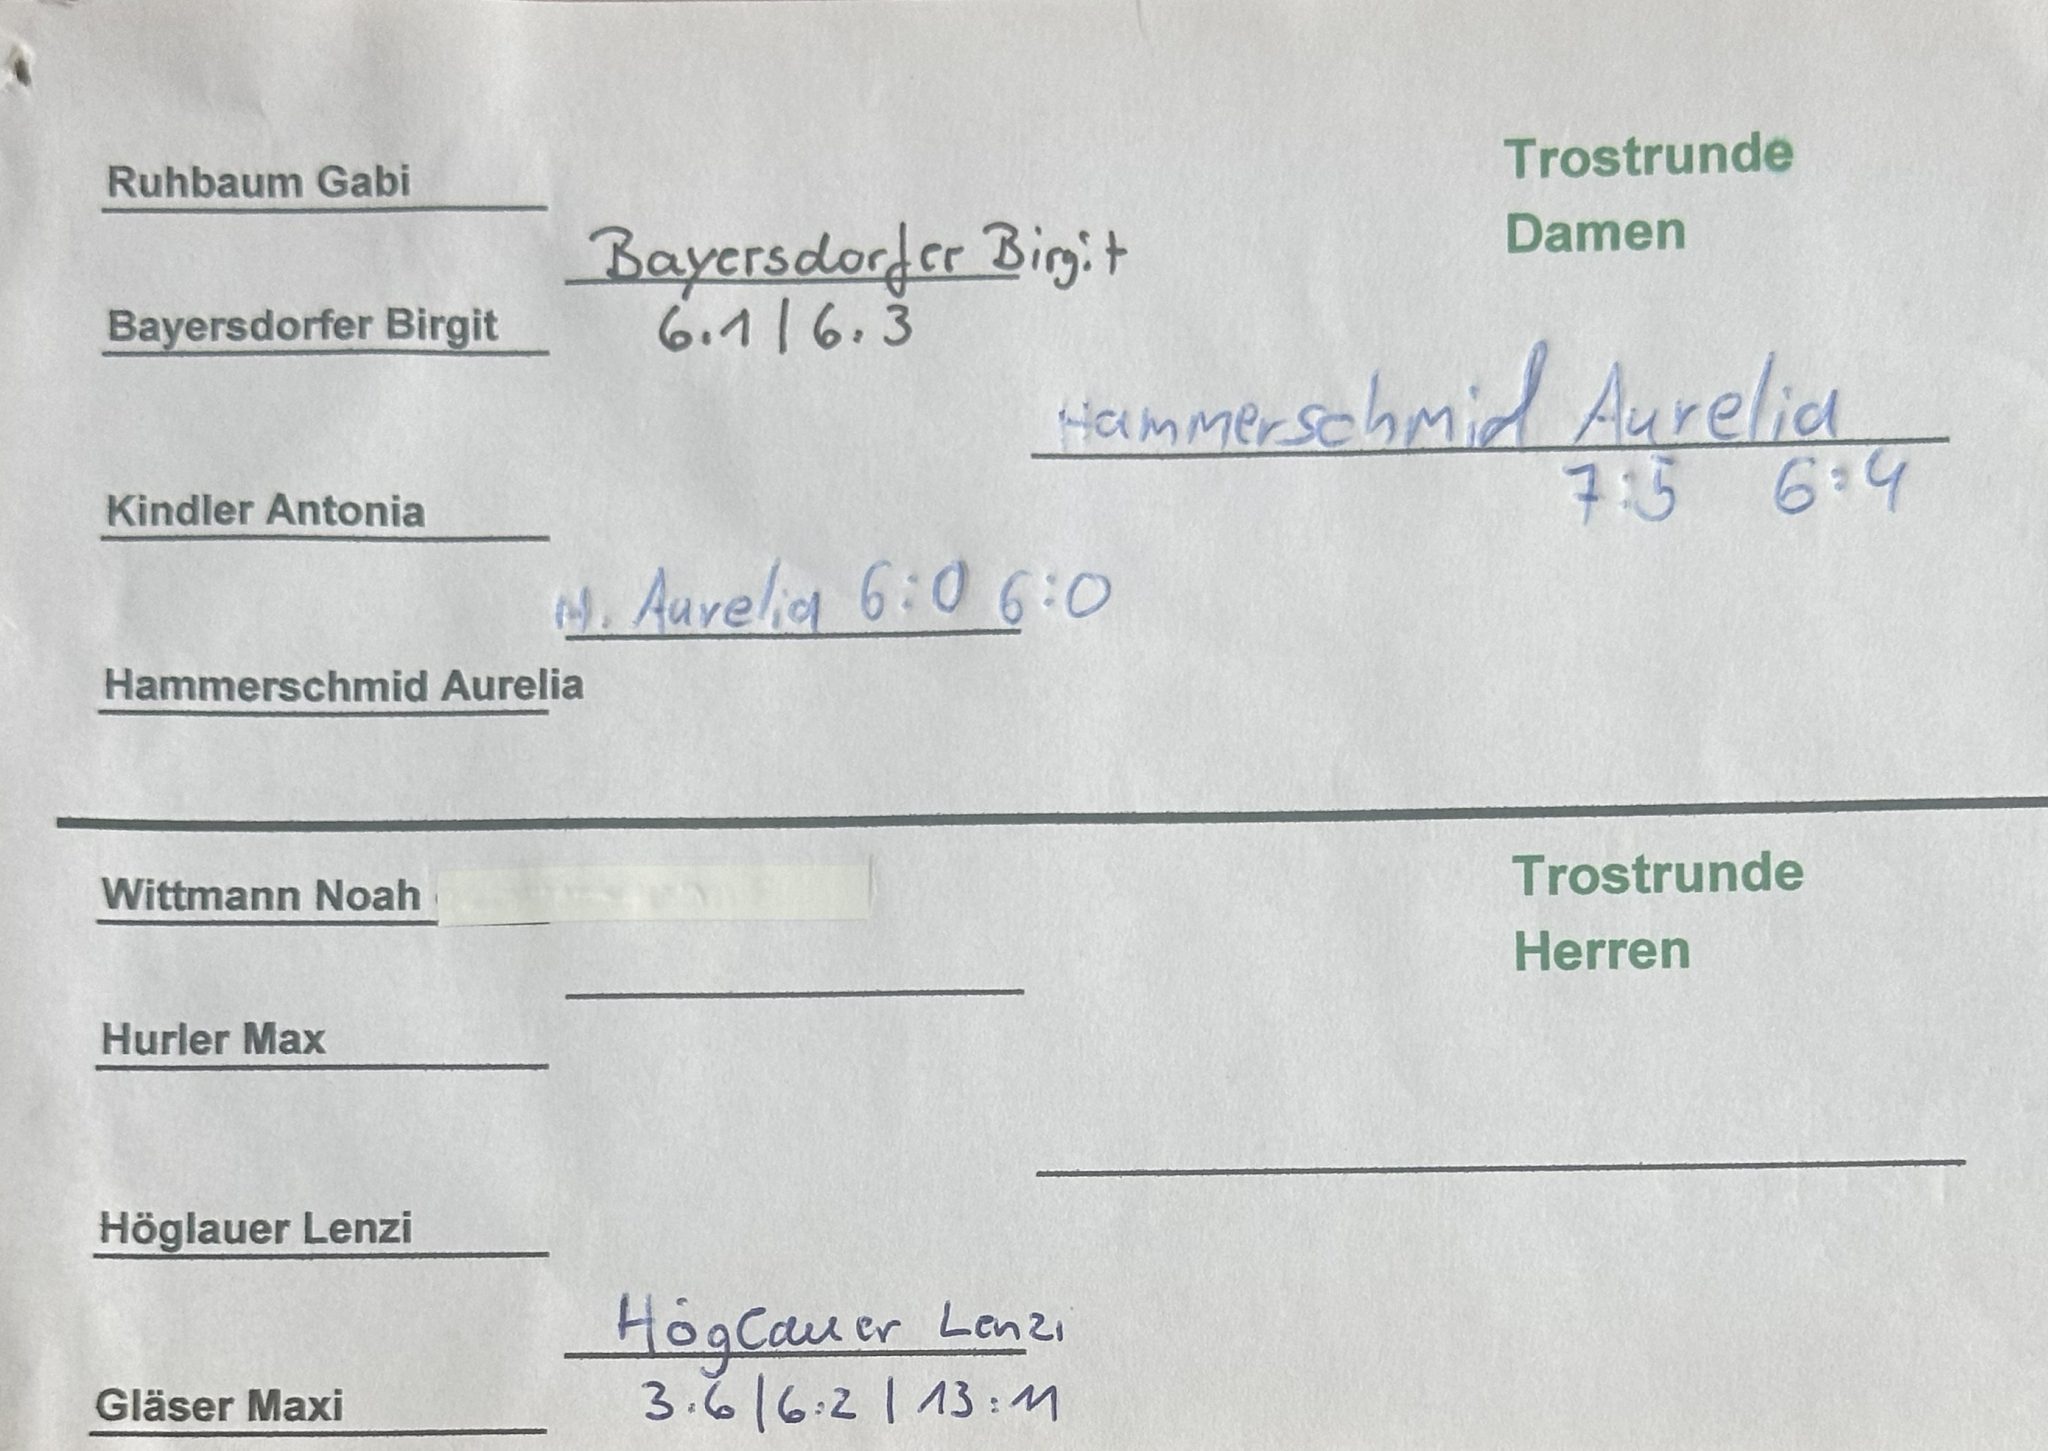 Ruhbaum Gabi
Trostrunde
Damen
Bayersdorfer Birgit
Bayersdorfer Birgit
6.1 | 6.3
Hammerschmid Aurelia
7:5 6:4
Kindler Antonia
H. Aurelia 6:0 6:0
Hammerschmid Aurelia
Wittmann Noah
Trostrunde
Herren
Hurler Max
Höglauer Lenzi
Höglauer Lenzi
3.6 | 6.2 | 13:11
Gläser Maxi